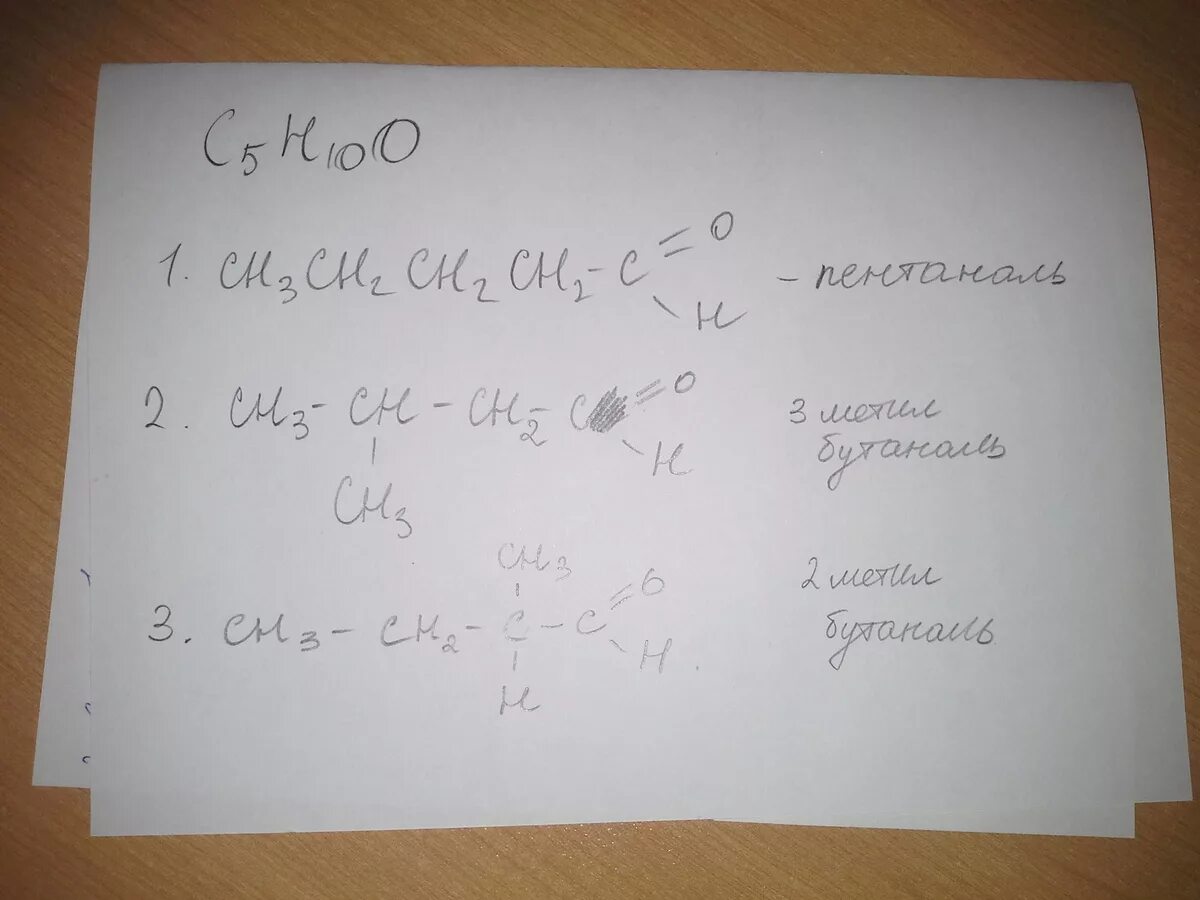 C₅H₁₀O
1. CH₃CH₂CH₂CH₂-C=O - пентаналь
H
2. CH₃-CH-CH₂-C=O 3 метил
H бутаналь
CH₃
CH₃
3. CH₃-CH₂-C-C=O 2 метил
H бутаналь
H